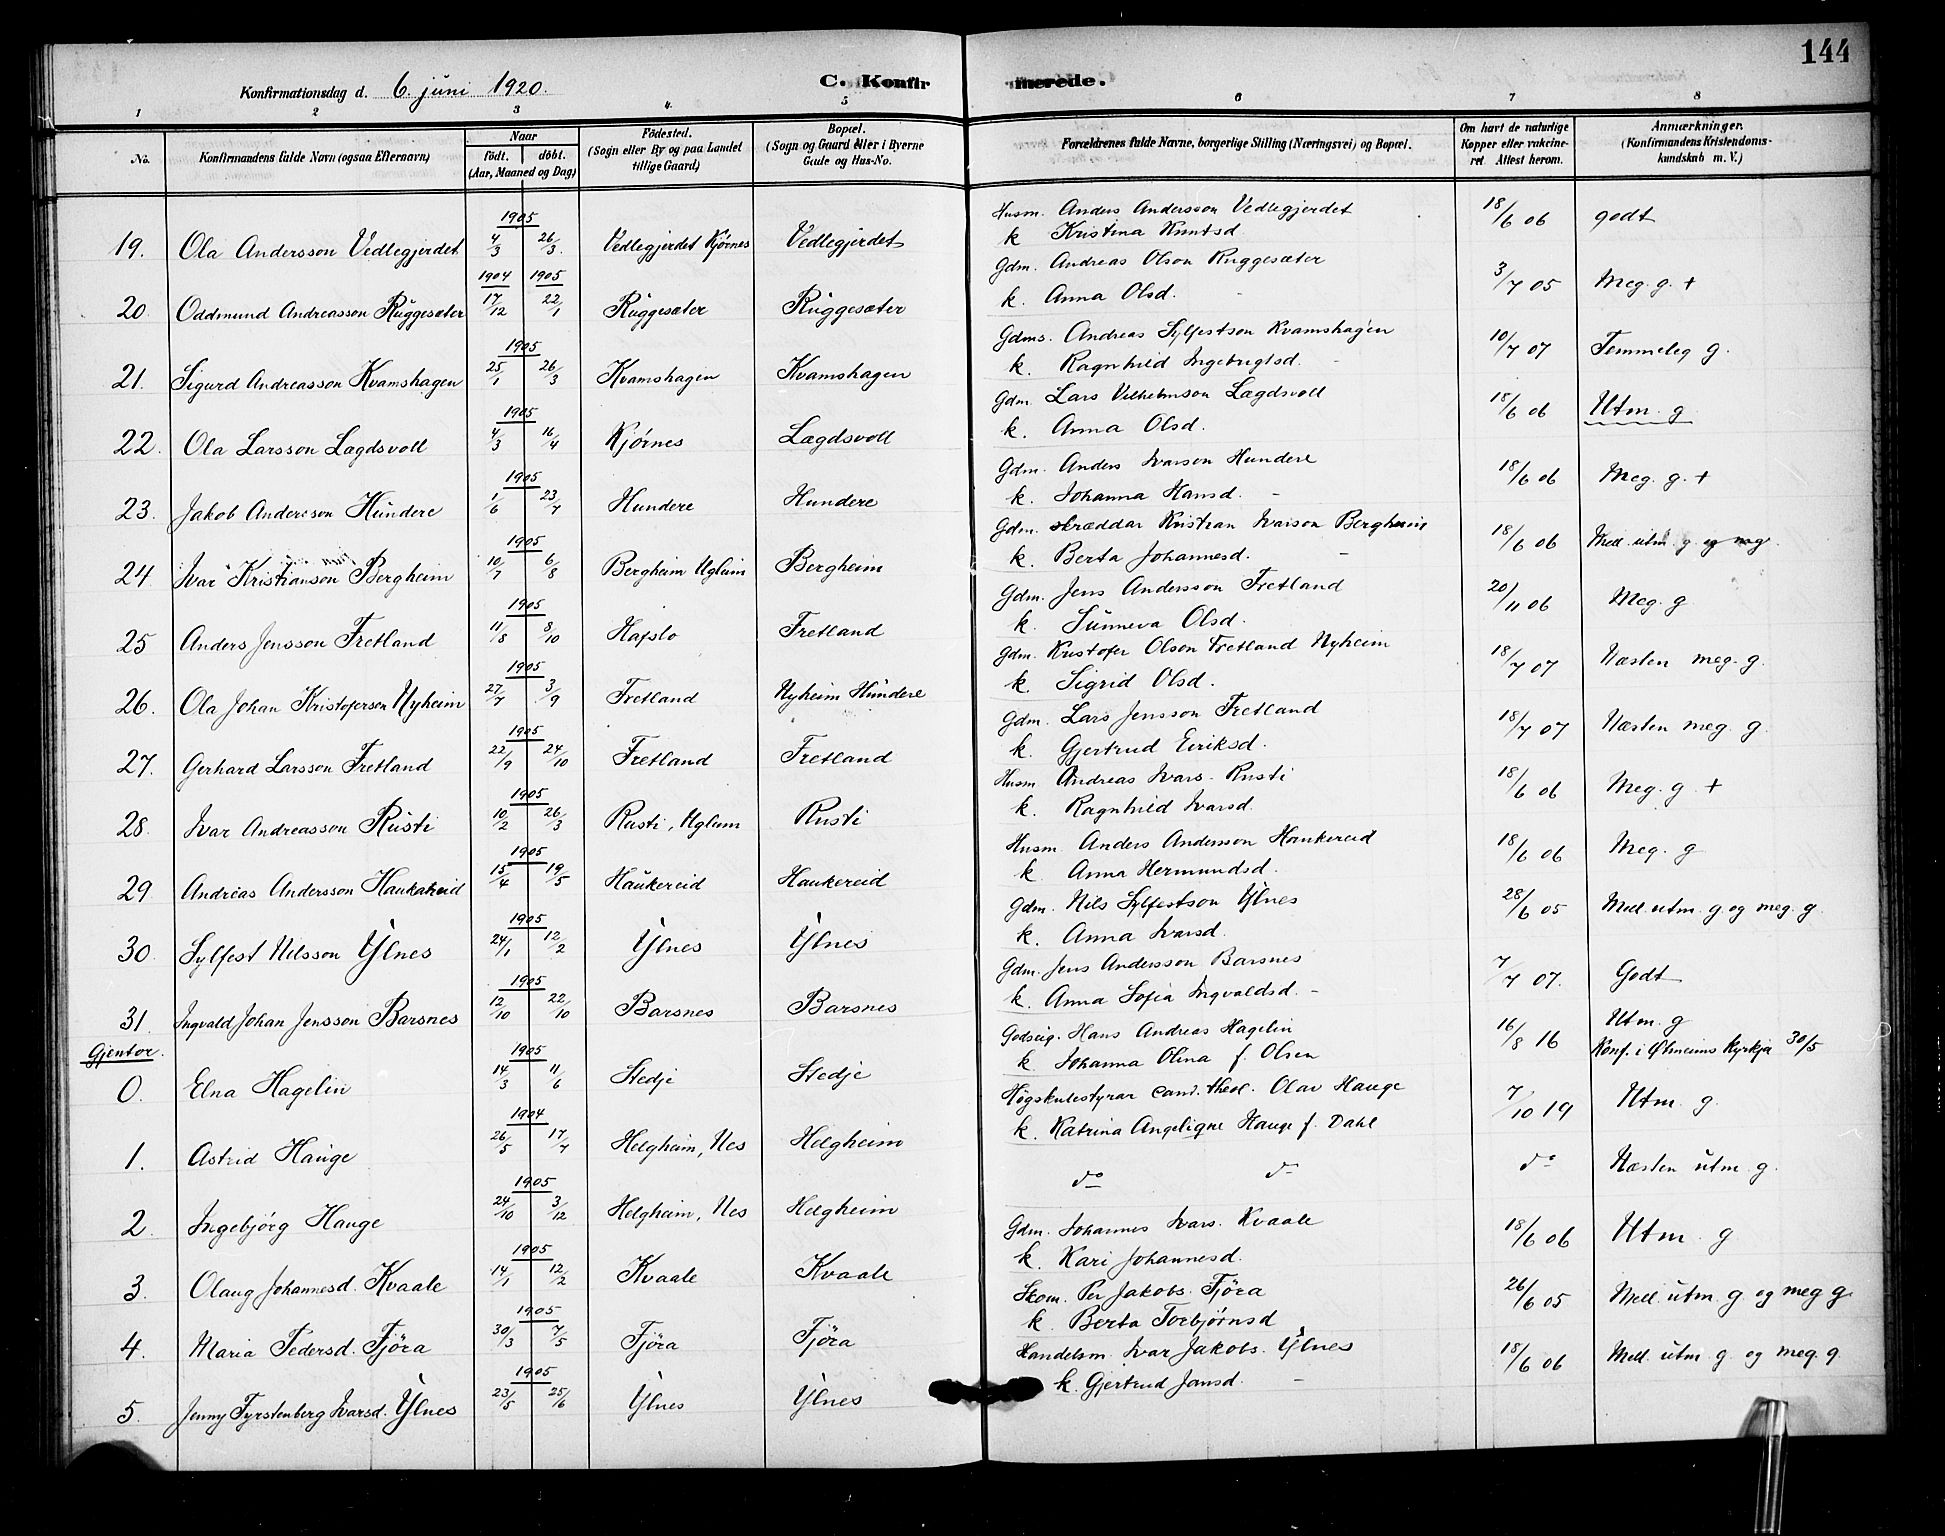 144
Konfirmationsdag d. 6. juni 1920.
C. Konfir merede.
1 2 3 4 5 6 7 8
No. Konfirmandens fulde Navn (ogsaa Efternavn) Naar födt. döbt. (Aar, Maaned og Dag) Födested. (Sogn eller By og paa Landet tillige Gaard) Bopæl. (Sogn og Gaard eller i Byerne Gade og Hus-No. Forældrenes fulde Navne, borgerlige Stilling (Næringsvei) og Bopæl. Om havt de naturlige Kopper eller vakcineret Attest herom. Anmærkninger. (Konfirmandens Kristendomskundskab m. V.)
1905
19. Ola Andersson Vedlegjerdet 4/3 26/3. Vedlegjerdet Kjørnes Vedlegjerdet Husm. Anders Andersson Vedlegjerdet 18/6 06 godt
k Kristina Knutsd
1904 1905
20. Oddmund Andreasson Ruggesæter 17/12 22/1 Ruggesæter Ruggesæter Gdm. Andreas Olson Ruggesæter 3/7 05 Meg. g. +
k. Anna Olsd.
1905
21. Sigurd Andreasson Kvamshagen 25/1 26/3 Kvamshagen Kvamshagen Gdms. Andreas Sylfestson Kvamshagen 10/7 07 Temmeleg g.
k. Ragnhild Ingebrigtsd.
1905
22. Ola Larsson Lægdsvoll 4/3 16/4 Kjørnes Lægdsvoll Gdm. Lars Vilhelmson Lægdsvoll 18/6 06 Utm. g
k. Anna Olsd.
1905
23. Jakob Andersson Hundere 1/6 23/7 Hundere Hundere Gdm. Anders Ivarson Hundere 18/6 06 Meg. g. +
k. Johanna Hansd.
1905
24. Ivar Kristianson Bergheim 10/7 6/8 Bergheim Uglum Bergheim Gdm. skræddar Kristian Ivarson Bergheim 18/6 06 Mell. utm. g og meg.
k. Berta Johannesd.
1905
25 Anders Jensson Fretland 11/8 8/10 Hafslo Fretland Gdm. Jens Andersson Fretland 20/11 06 Meg. g
k. Sunneva Olsd.
1905
26. Ola Johan Kristoferson Nyheim 27/7 3/9 Fretland Nyheim Hundere Gdm. Kristofer Olson Fretland Nyheim 18/7 07 Næsten meg. g.
k. Sigrid Olsd.
1905
27. Gerhard Larsson Fretland 22/9 24/10 Fretland Fretland Gdm. Lars Jensson Fretland 18/7 07 Næsten meg. g.
k. Gjertrud Eiriksd.
1905
28. Ivar Andreasson Rusti 10/2 26/3 Rusti, Uglum Rusti Husm. Andreas Ivars. Rusti 18/6 06 Meg. g +
k. Ragnhild Ivarsd.
1905
29 Andreas Andersson Haukareid 15/4 19/5 Haukereid Haukereid Husm. Anders Anderson Haukereid 18/6 06 Meg. g
k Anna Hermundsd.
1905
30. Sylfest Nilsson Ylnes 24/1 12/2 Ylnes Ylnes Gdm. Nils Sylfestson Ylnes 28/6 05 Mell. utm. g og meg. g.
k. Anna Ivarsd.
1905
31. Ingvald Johan Jensson Barsnes 12/10 22/10 Barsnes Barsnes Gdm. Jens Andersson Barsnes 7/7 07. Godt
k. Anna Sofia Ingvaldsd.
Gjentor.
1905
0. Elna Hagelin 14/3 11/6 Stedje Stedje Godseig. Hans Andreas Hagelin 16/8 16 Utm. g
k Johanna Olina f. Olsen Konf. i Ølmeims Kyrkja 30/5
1904
1. Astrid Hauge 26/5 17/7 Helgheim, Nes Helgheim Høgskulestyrar cand. theol. Olav Hauge 7/10 19 Utm. g.
k. Katrina Angeliqne Hauge f. Dahl
1905
2. Ingebjörg Hauge 24/10 3/12 Helgheim, Nes Helgheim do do do Næsten utm. g.
1905
3. Olaug Johannesd. Kvaale 14/1 12/2 Kvaale Kvaale Gdm. Johannes Ivars. Kvaale 18/6 06 Utm. g
k. Kari Johannesd.
1905
4. Maria Pedersd. Fjöra 30/3 7/5 Fjöra Fjöra Skom. Per Jakobs. Fjöra 26/6 05 Mell. utm. g og meg g.
k. Berta Torbjørnsd
1905
5. Jenny Fyrstenberg Ivarsd. Ylnes 23/5 25/6 Ylnes Ylnes Handelsm. Ivar Jakobs. Ylnes 18/6 06 Mell. utm g. og meg. g
k. Gjertrud Jansd.